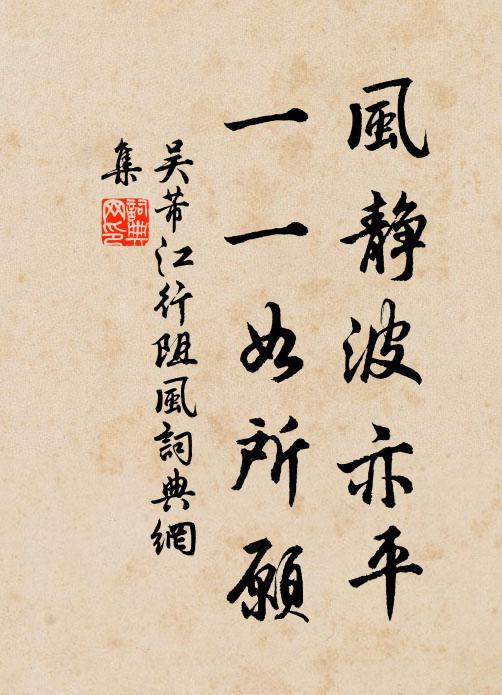 風静波亦平
一一如所願
吳芾江行阻風詞典網
集
詞典
网印